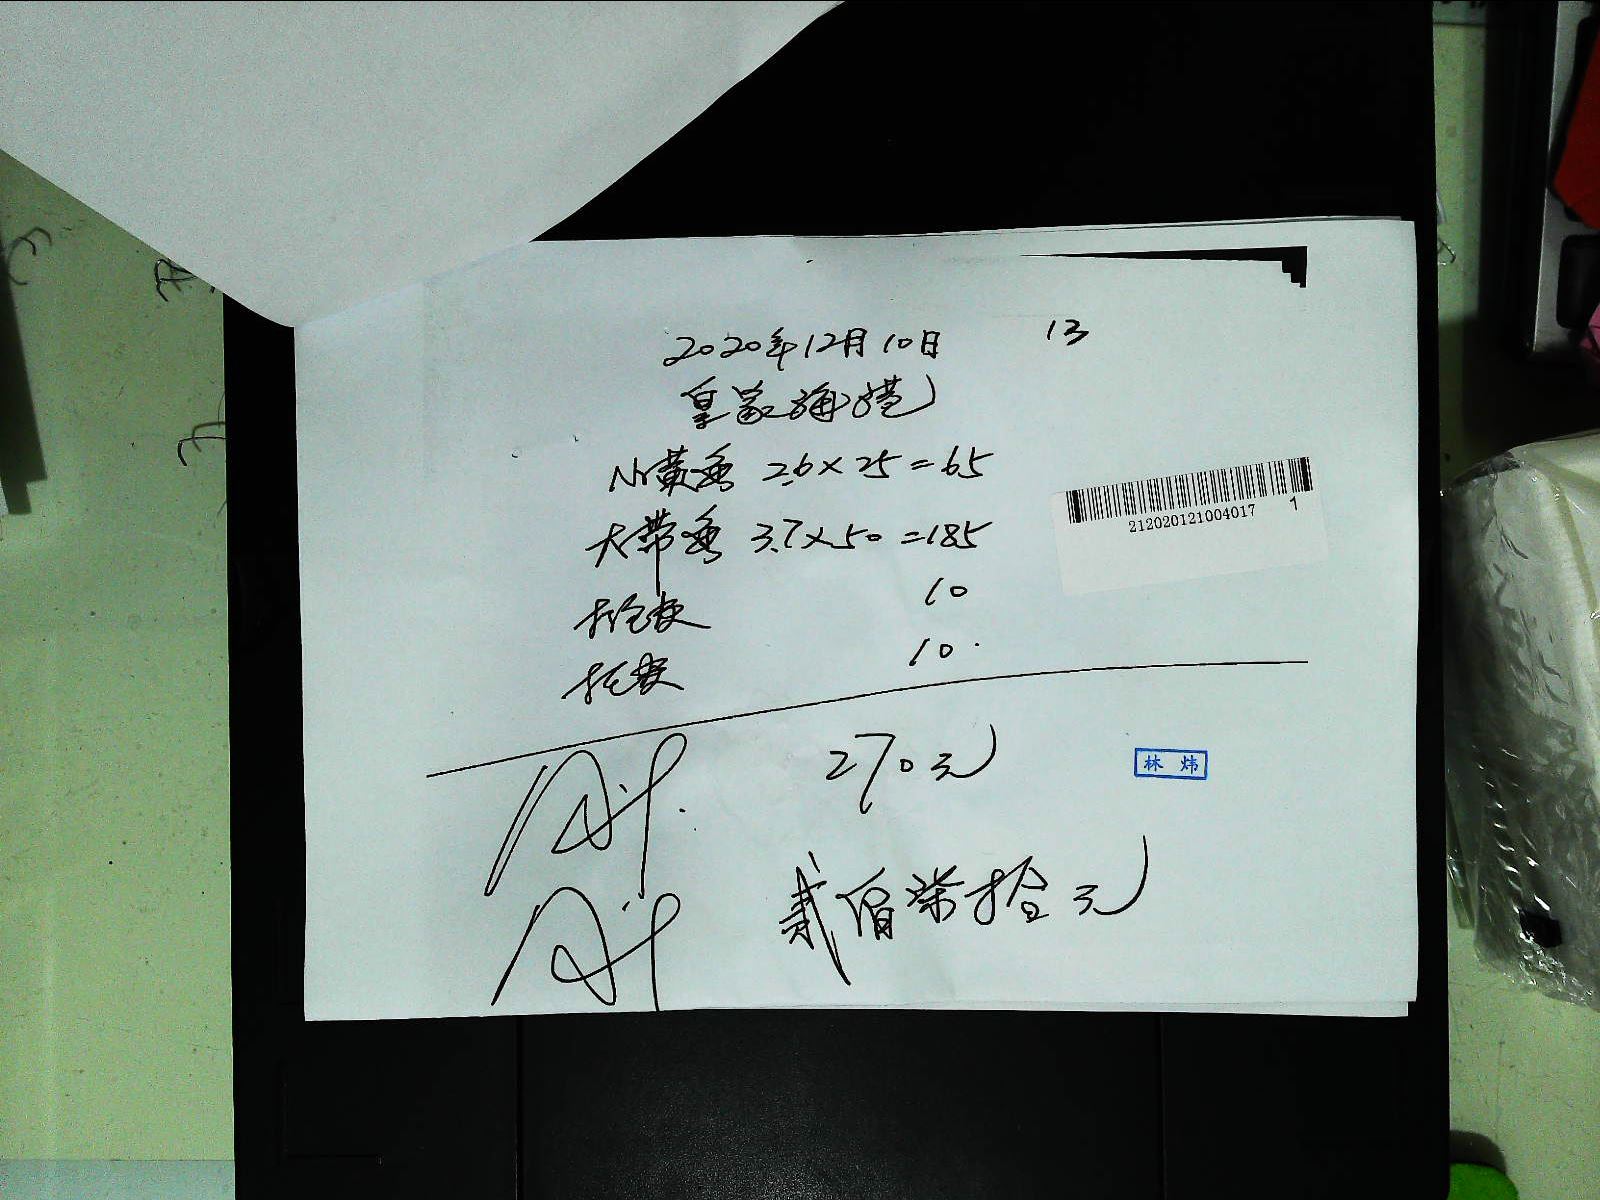 2020年12月10日 13
皇家海港
小黄鱼 2.6×25=65
212020121004017 1
大带鱼 3.7×50=185
10
10
270元
林炜
贰佰柒拾元